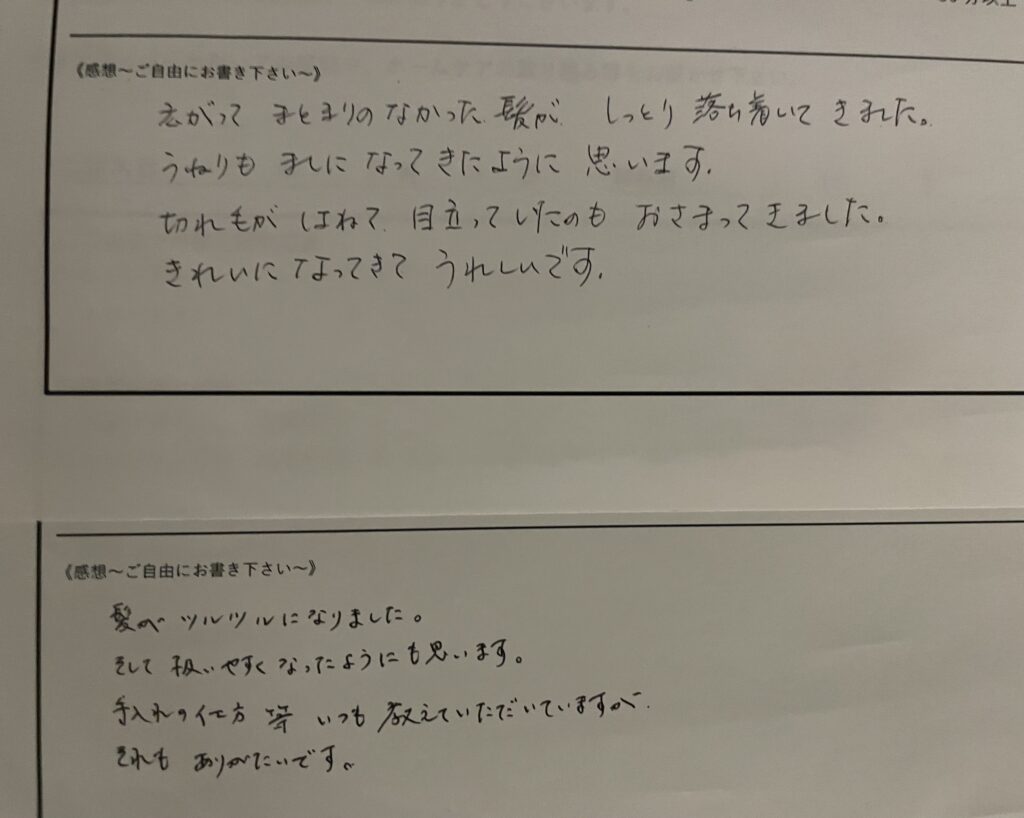 《感想～ご自由にお書き下さい～》
まとまりのなかった髪が しっとり 落ち着いて きました。
うねりも ましに なってきたように 思います。
切れもが はねて 目立っていたのも おさまってきました。
きれいに なってきて うれしいです。
《感想～ご自由にお書き下さい～》
髪が ツルツルになりました。
そして 扱いやすく なったようにも思います。
手入れの仕方 等 いつも 教えていただいていますが
それも ありがたいです。